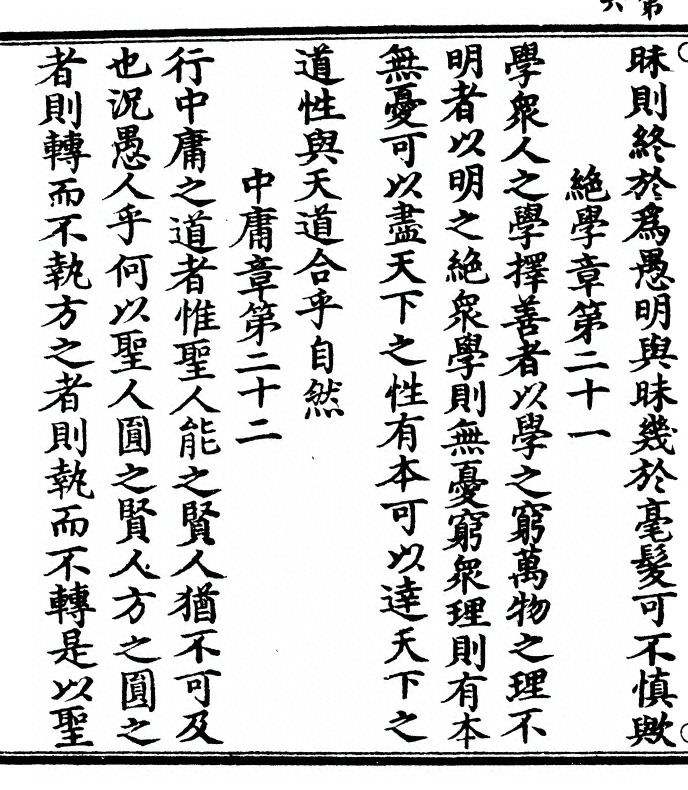 第
六
昧則終於爲愚明與昧幾於毫髮可不慎歟
絶學章第二十一
學衆人之學擇善者以學之窮萬物之理不
明者以明之絶衆學則無憂窮衆理則有本
無憂可以盡天下之性有本可以達天下之
道性與天道合乎自然
中庸章第二十二
行中庸之道者惟聖人能之賢人猶不可及
也況愚人乎何以聖人圓之賢人方之圓之
者則轉而不執方之者則執而不轉是以聖